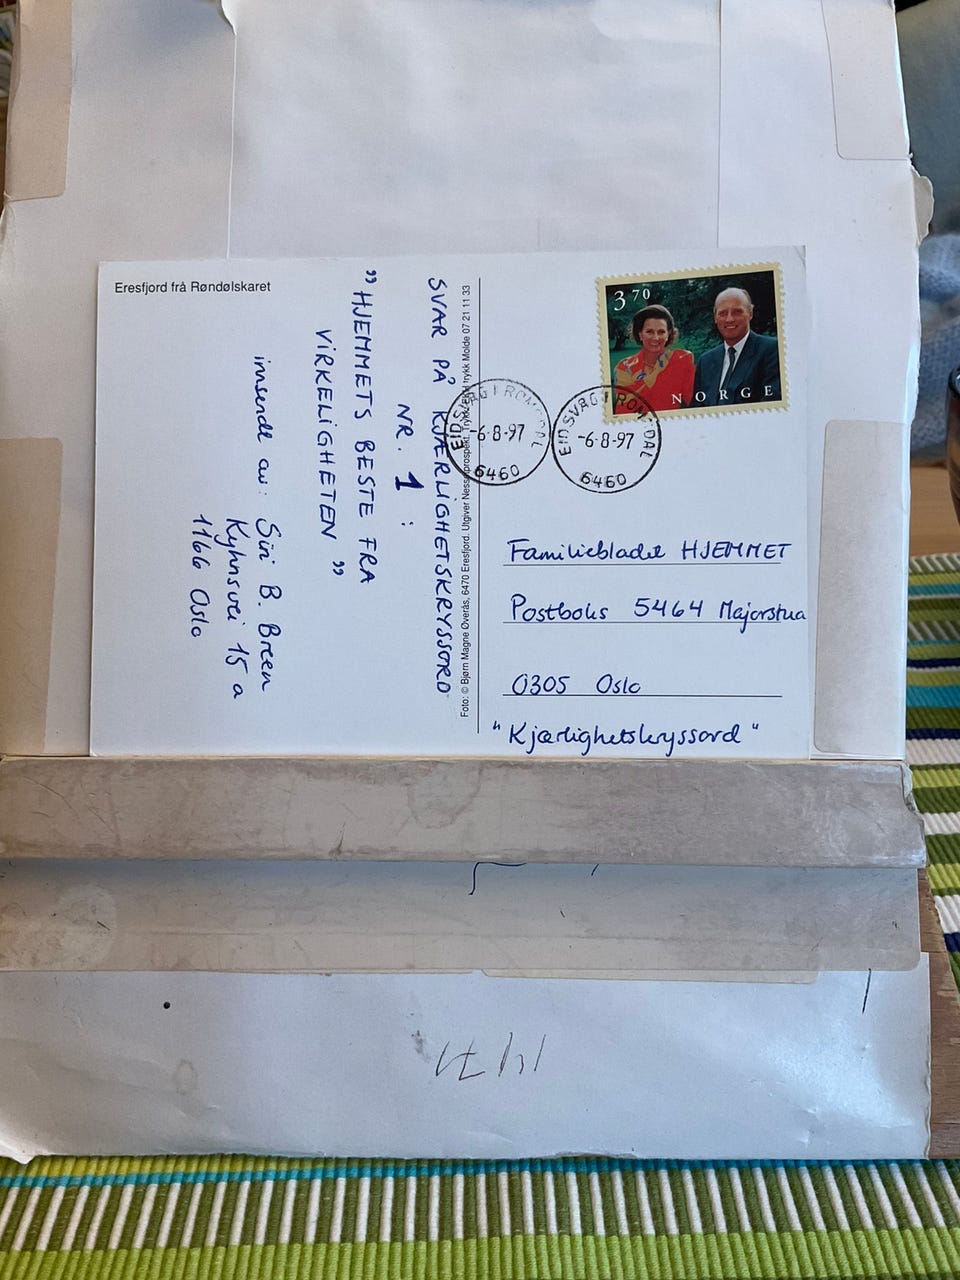 Eresfjord frå Røndølskaret
SVAR PÅ KJÆRLIGHETSKRYSSORD
NR. 1 :
"HJEMMETS BESTE FRA
VIRKELIGHETEN"
innsendt av: Siri B. Breen
Kyhnsvei 15 a
1166 Oslo
Foto: © Bjørn Magne Øverås, 6470 Eresfjord. Utgiver Nesset prospekt. Trykk: EKH trykk Molde 07 21 11 33
3 70
NORGE
EIDSVÅG I ROMSDAL
-6-8-97
6460
EIDSVÅG I ROMSDAL
-6-8-97
6460
Familiebladet HJEMMET
Postboks 5464 Majorstua
0305 Oslo
"Kjærlighetskryssord"